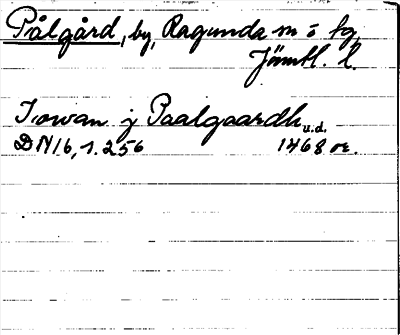 Pålgård, by, Ragunda sn o tg,
Jämtl. l.
Iowan j Paalgaardh u.d.
DN 16, 1. 256 1468 or.